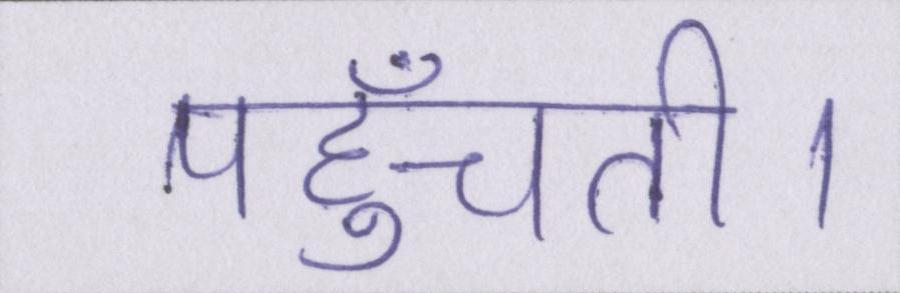 पहुँचती।